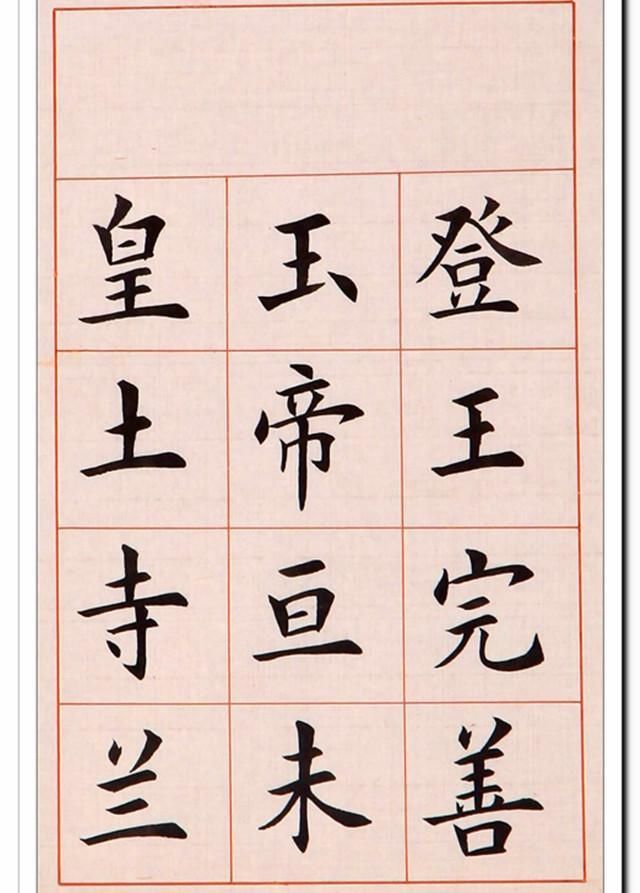 登王完善
玉帝亘未
皇土寺兰